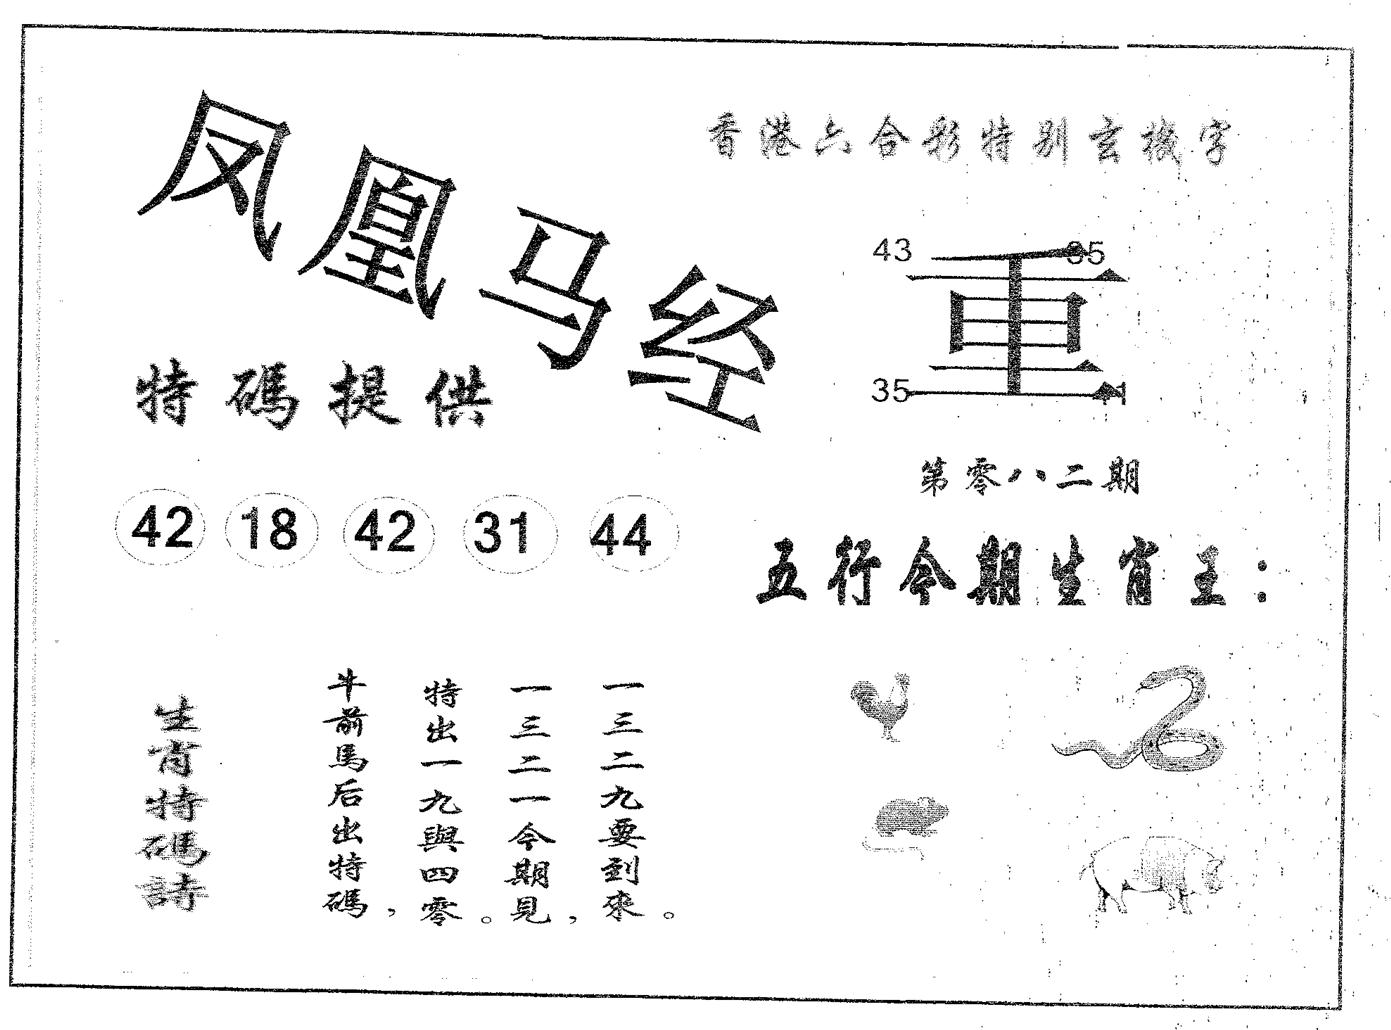 凤凰马经
香港六合彩特别玄機字
43
重
35
特碼提供
第零八二期
42 18 42 31 44
五行今期生肖王：
生肖特碼詩
牛前馬后出特碼，
特出一九與四零。
一三二一今期見，
一三二九要到來。